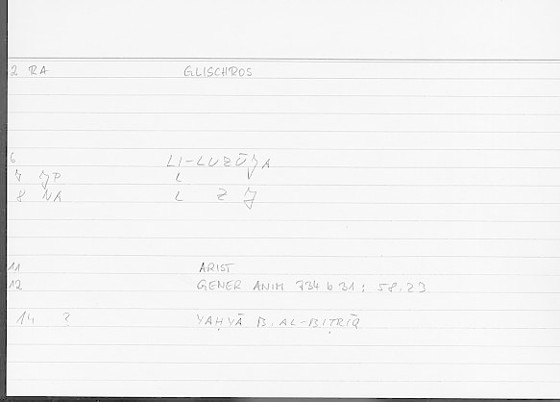 2 RA GLISCHROS
6 LI-LUZŪǦA
7 JP L
8 NA L Z J
11 ARIST
12 GENER ANIM 734 b 31 ; 58.23
14 2 YAḤYĀ B. AL-BIṬRĪQ